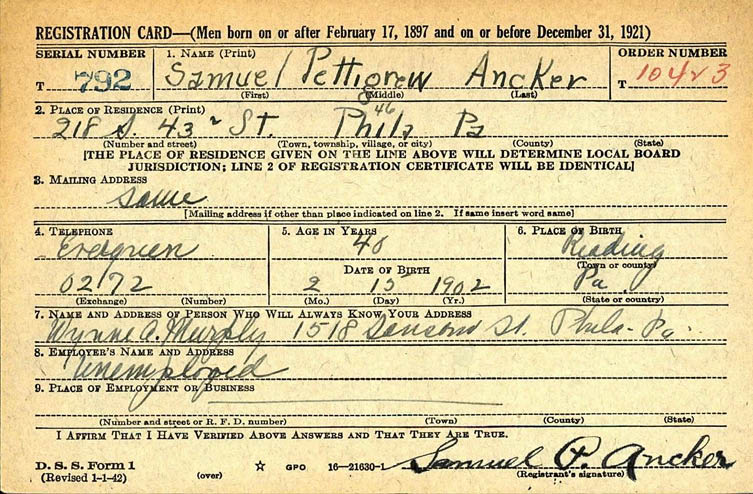 REGISTRATION CARD—(Men born on or after February 17, 1897 and on or before December 31, 1921)
SERIAL NUMBER 1. NAME (Print) ORDER NUMBER
T 792 Samuel Pettigrew Ancker T 10423
(First) (Middle) (Last)
2. PLACE OF RESIDENCE (Print) 46
218 S. 43 St. Phila Pa
(Number and street) (Town, township, village, or city) (County) (State)
[THE PLACE OF RESIDENCE GIVEN ON THE LINE ABOVE WILL DETERMINE LOCAL BOARD
JURISDICTION; LINE 2 OF REGISTRATION CERTIFICATE WILL BE IDENTICAL]
3. MAILING ADDRESS
same
[Mailing address if other than place indicated on line 2. If same insert word same]
4. TELEPHONE 5. AGE IN YEARS 6. PLACE OF BIRTH
Evergreen 40 Reading
DATE OF BIRTH (Town or county)
0272 2 15 1902 Pa.
(Exchange) (Number) (Mo.) (Day) (Yr.) (State or country)
7. NAME AND ADDRESS OF PERSON WHO WILL ALWAYS KNOW YOUR ADDRESS
Wynne A. Murphy 1518 Sansom St. Phila. Pa.
8. EMPLOYER'S NAME AND ADDRESS
Unemployed
9. PLACE OF EMPLOYMENT OR BUSINESS
(Number and street or R. F. D. number) (Town) (County) (State)
I AFFIRM THAT I HAVE VERIFIED ABOVE ANSWERS AND THAT THEY ARE TRUE.
D. S. S. Form 1 GPO 16—21630-1 Samuel P. Ancker
(Revised 1-1-42) (over) (Registrant's signature)